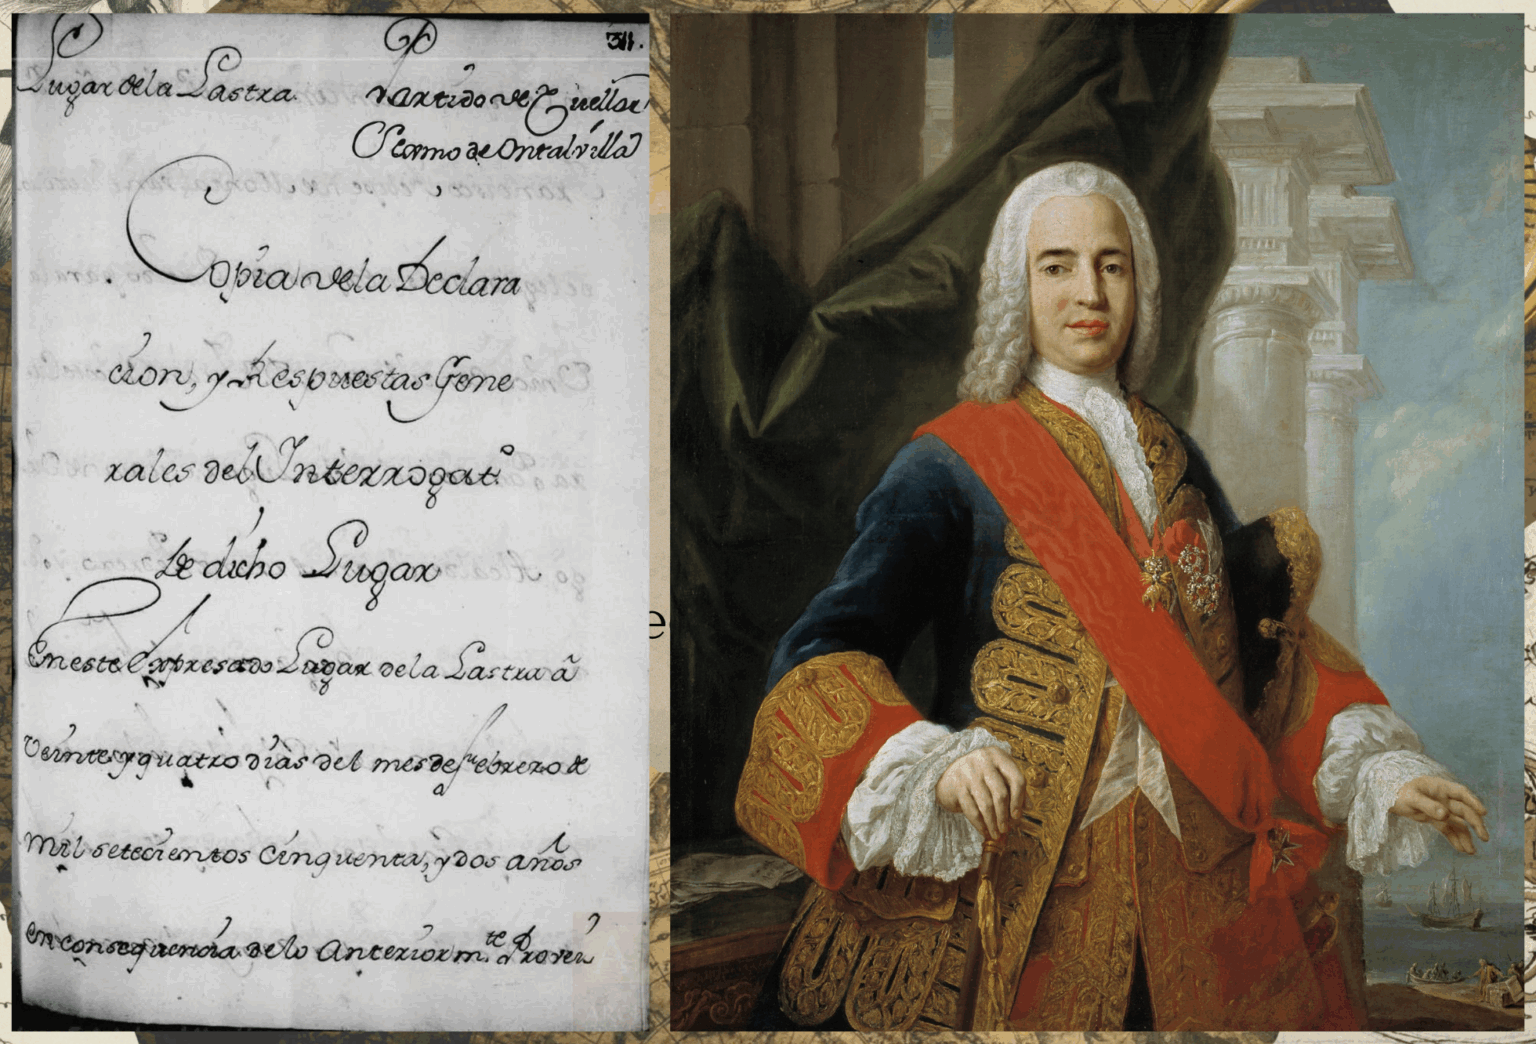 311.
Lugar dela Lastra Partido de Cuellar
Ocormo de Ontalvilla
Copia dela Declara
cion, y Respuestas Gene
rales del Interrogatº
De dicho Lugar
En este Expresado Lugar dela Lastra â
Veinte y quatro dias del mes de febrero de
Mil setecientos cinquenta, y dos años
en consequencia de lo Anteriorm.te Provei
e